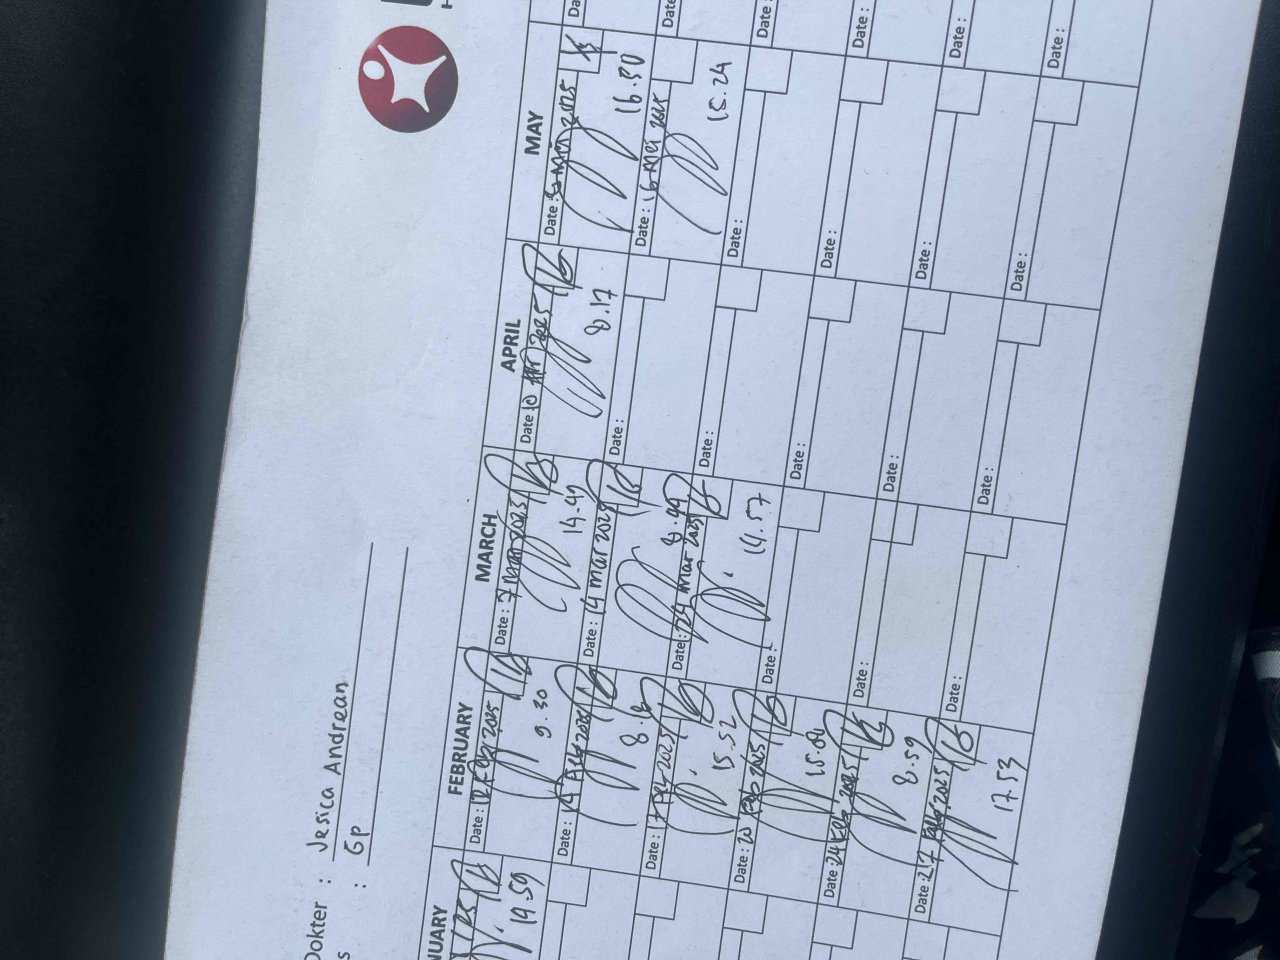 Dokter : Jesica Andrean
s : GP
NUARY
14.59
FEBRUARY
Date : 12 Feb 2025
9.30
Date : 14 Feb 2025
Date : 17 Feb 2025
15.52
Date : 20 Feb 2025
Date : 24 Feb 2025
8.59
Date : 27 Feb 2025
17.53
MARCH
Date : 7 Mar 2025
14.49
Date : 14 Mar 2025
8.49
Date : 24 Mar 2025
14.57
Date :
Date :
Date :
APRIL
Date : 10 Apr 2025
8.17
Date :
Date :
Date :
Date :
Date :
MAY
Date : Mei 2025
16.30
Date : 16 Mei 2025
15.24
Date :
Date :
Date :
Date :
Da
Date
Date :
Date :
Date :
Date :